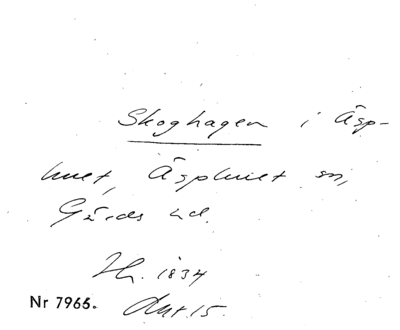 Skoghagen i Äsp-
huet, Äsphult sn,
Gärds hd.
Th. 1834
Nr 7966. Akt.15.